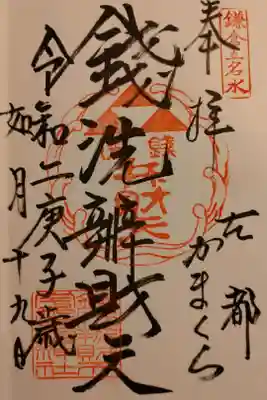 鎌倉五名水
奉拝
古都
かまくら
錢洗辨財天
令和二庚子歳
如月十九日